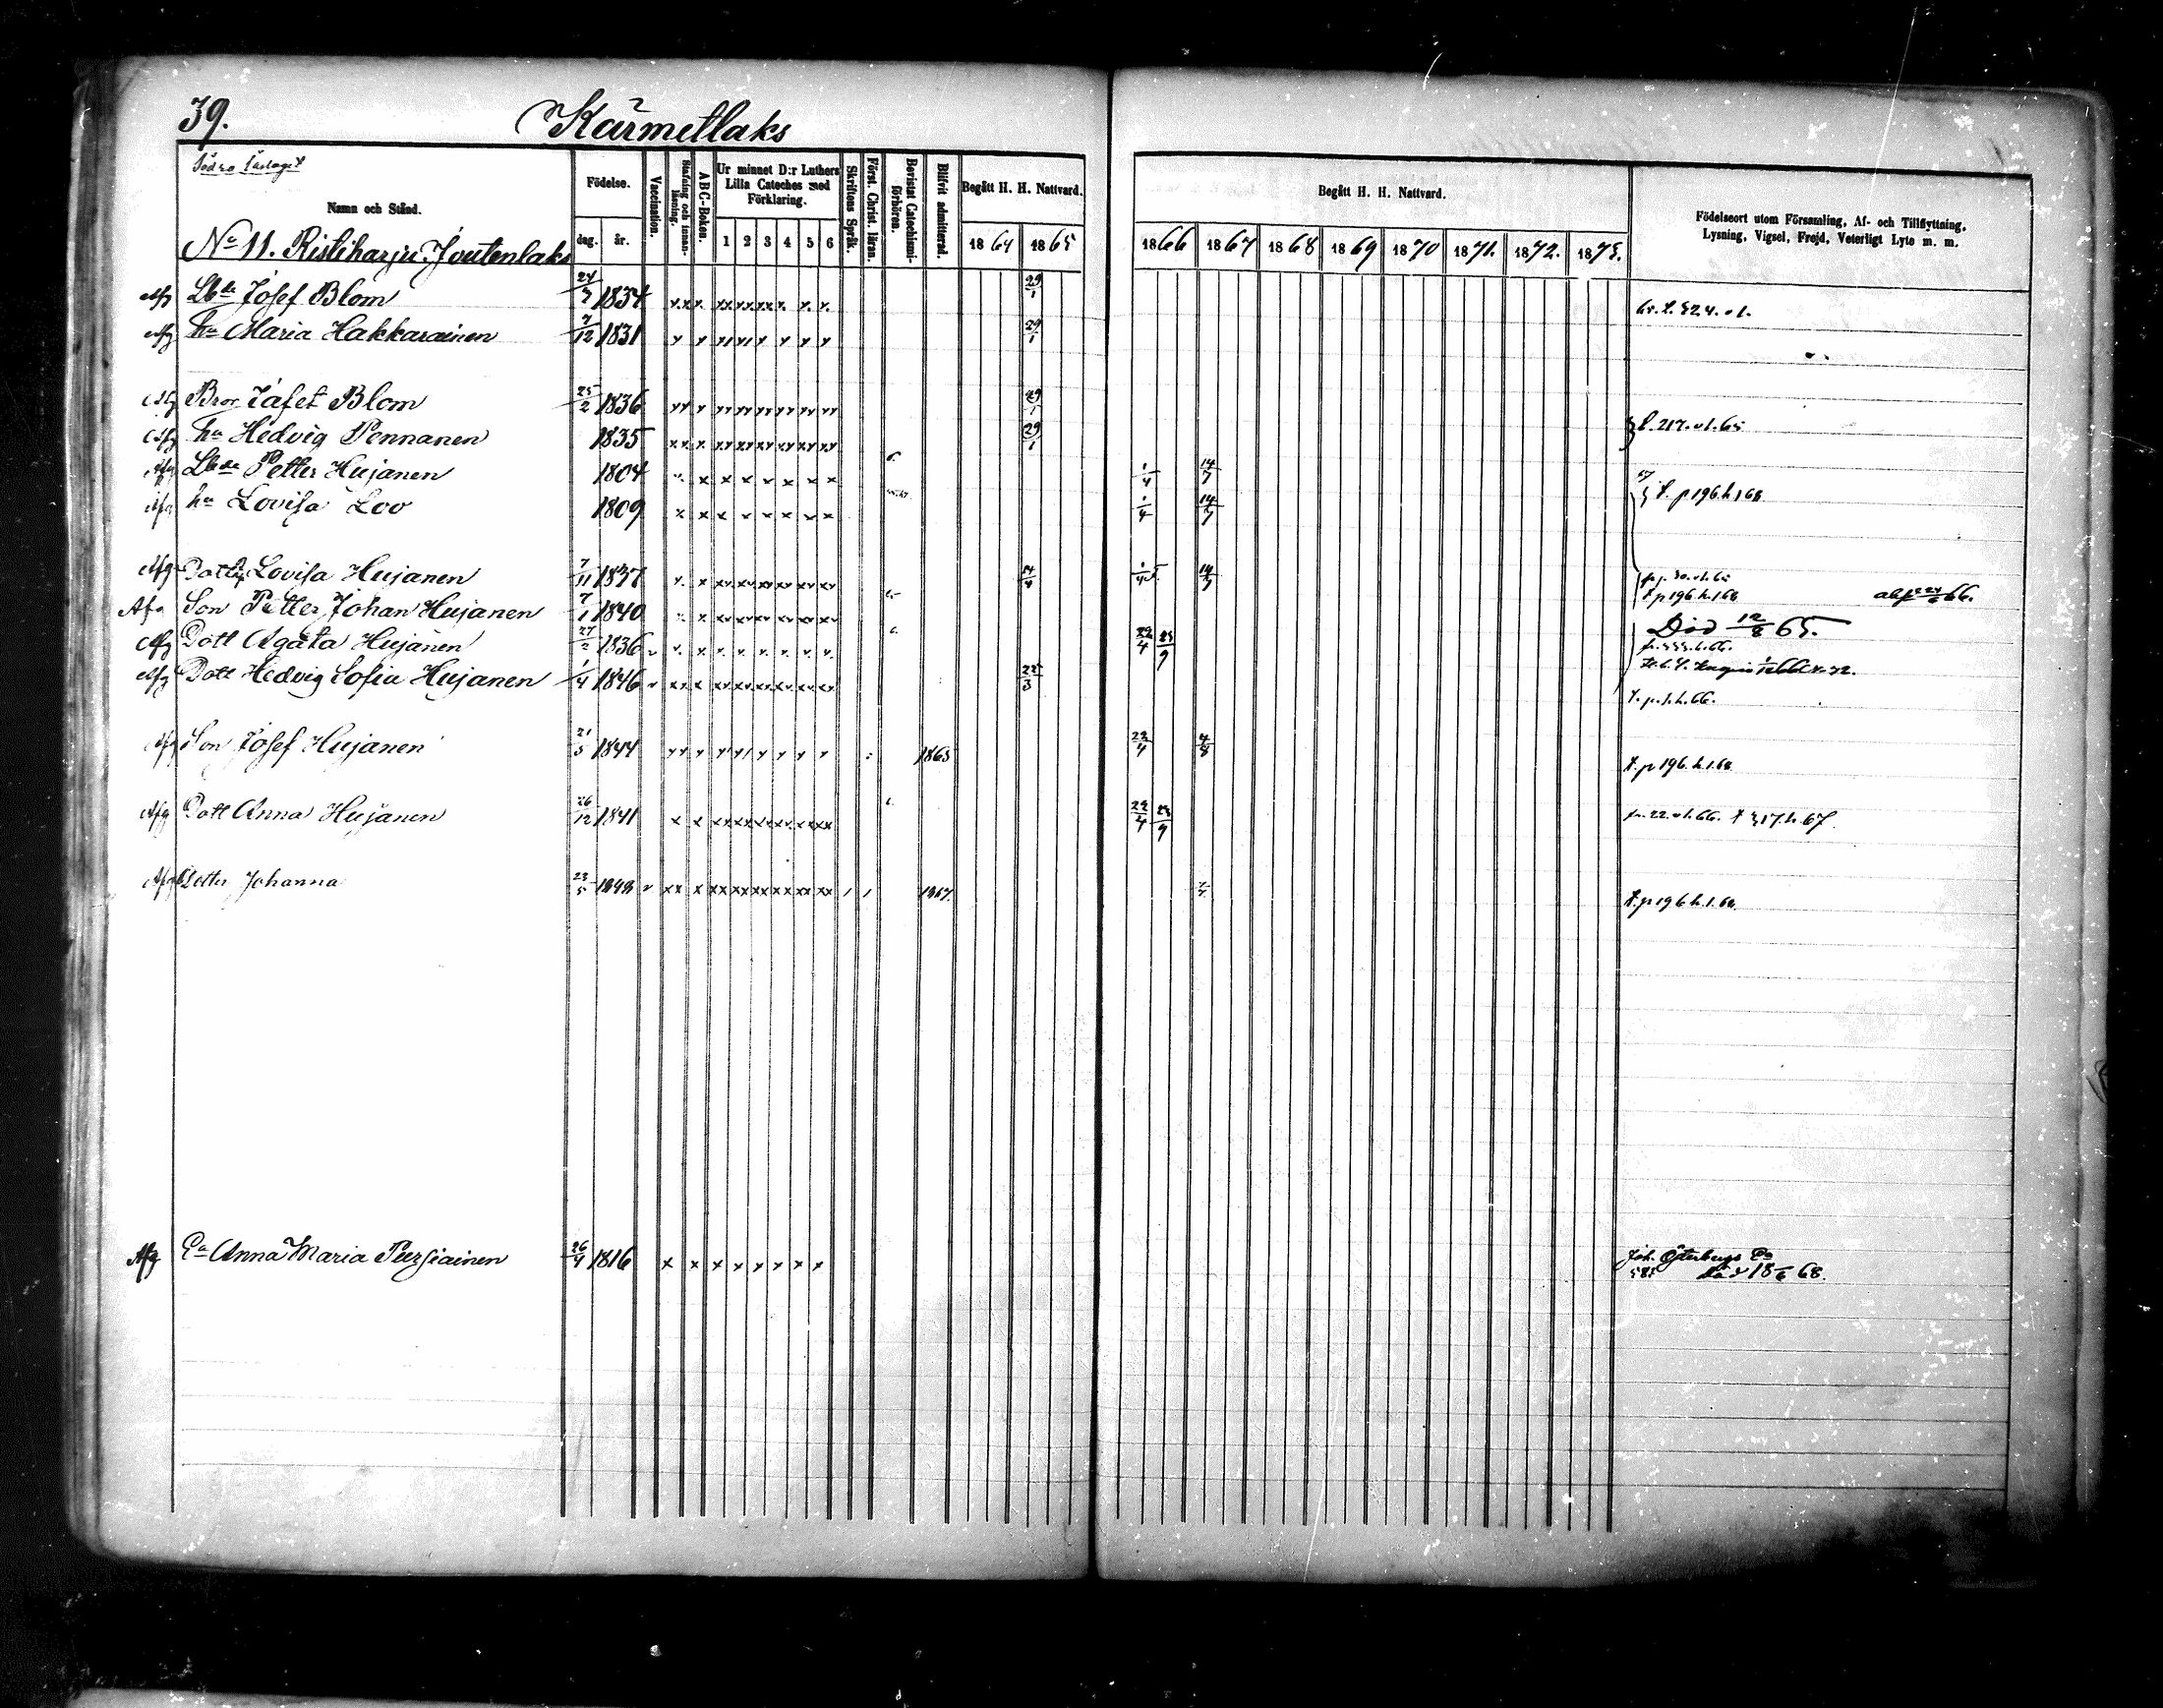 39.
Kärmetlaks
Namn och Stånd.
Födelse.
dag.
år.
Vaccination.
Stafning och innan-läsning.
A B C-Boken.
Ur minnet D:r Luthers
Lilla Cateches med
Förklaring.
1 2 3 4 5 6
Skriftens Språk.
Först. Christ. läran.
Bevistat Catechismi-förhören.
Blifvit admitterad.
Begått H. H. Nattvard.
1864 1865
Begått H. H. Nattvard.
1866 1867 1868 1869 1870 1871. 1872. 1873.
Födelseort utom Församling, Af- och Tillflyttning,
Lysning, Vigsel, Frejd, Veterligt Lyte m. m.
No 11. Ristiharju Joutenlaks
Josef Blom 24/7 1834 29/1
Afg hu Maria Hakkarainen 7/12 1831 29/1
Afg Bror Jafet Blom 25/2 1836 29/1
Afg hu Hedvig Pennanen 1835 29/1 l. 217. 65
Petter Hujanen 1804 1/4 14/7 p 196. h. 1. 68
hu Lovisa Loo 1809 1/4 14/7
Afg Lovisa Hujanen 7/11 1837 1/4 14/7
Afg Son Petter Johan Hujanen 7/1 1840 p 196. h. 1. 68 66.
Afg Dott Agata Hujanen 27/2 1836 22/4 23/9 Död 12/8 65.
Afg Dott Hedvig Sofia Hujanen 1/4 1846 25/3
Afg Son Josef Hujanen 21/5 1844 1865 22/4 4/8 p 196. h. 1. 68
Afg Dott Anna Hujanen 26/12 1841 22/4 23/9 22. 66. 317. h. 67
Afg Dotter Johanna 23/5 1848 1867. p 196 h. 1. 68
Afg Ea Anna Maria Pursiainen 26/4 1816 Joh. Österbergs Ea
död 18/6 68.